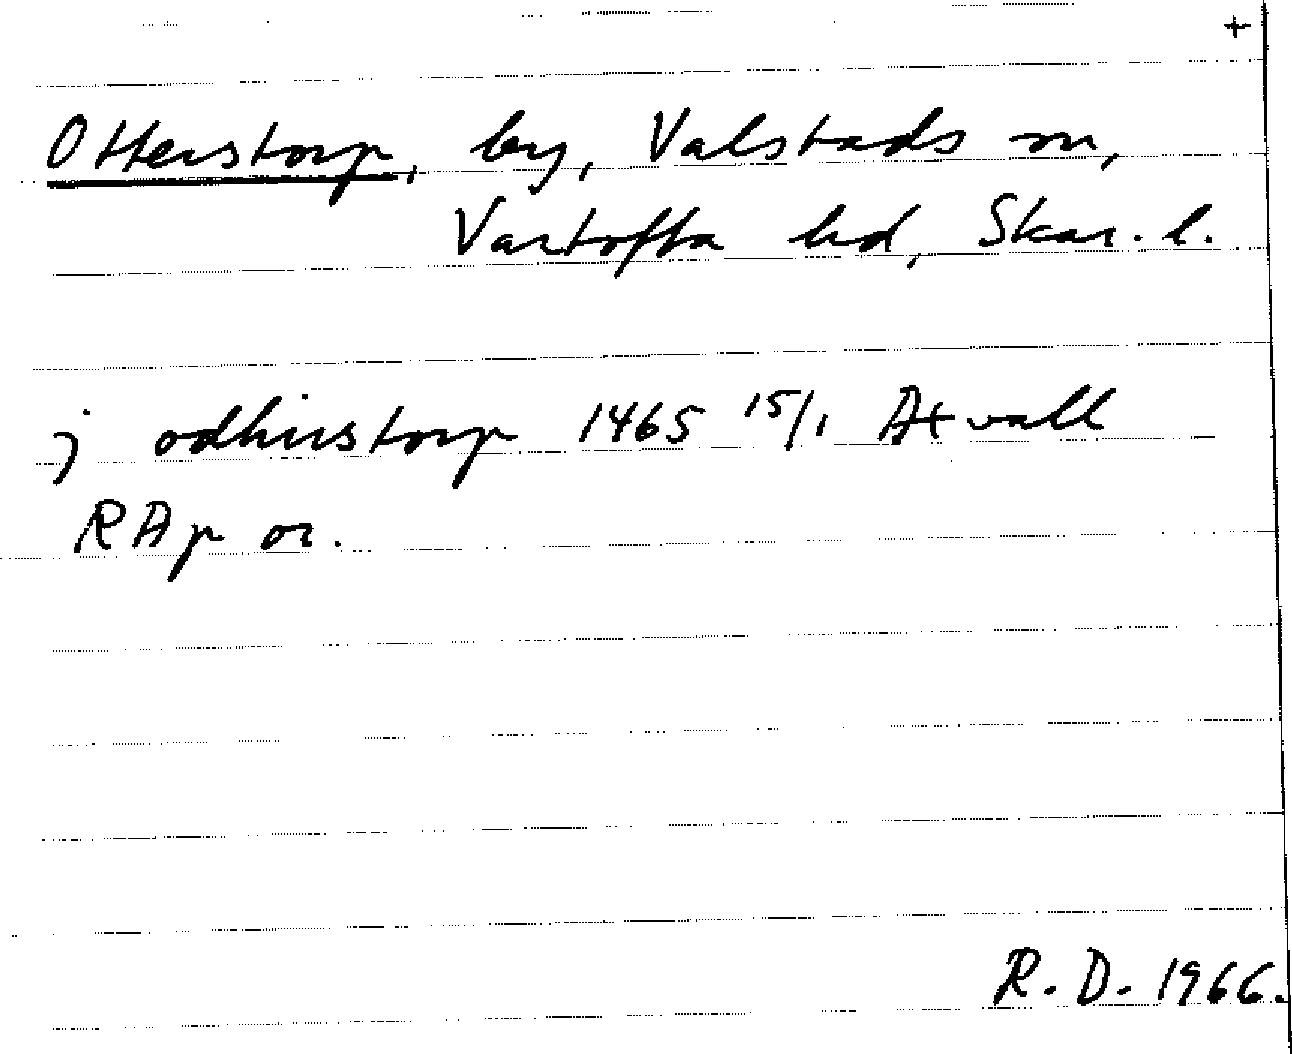 +
Otterstorp, by, Valstads sn,
Vartofta hd, Skar. l.
j odhirstorp 1465 15/1 Axvall
RAp or.
R. D. 1966.